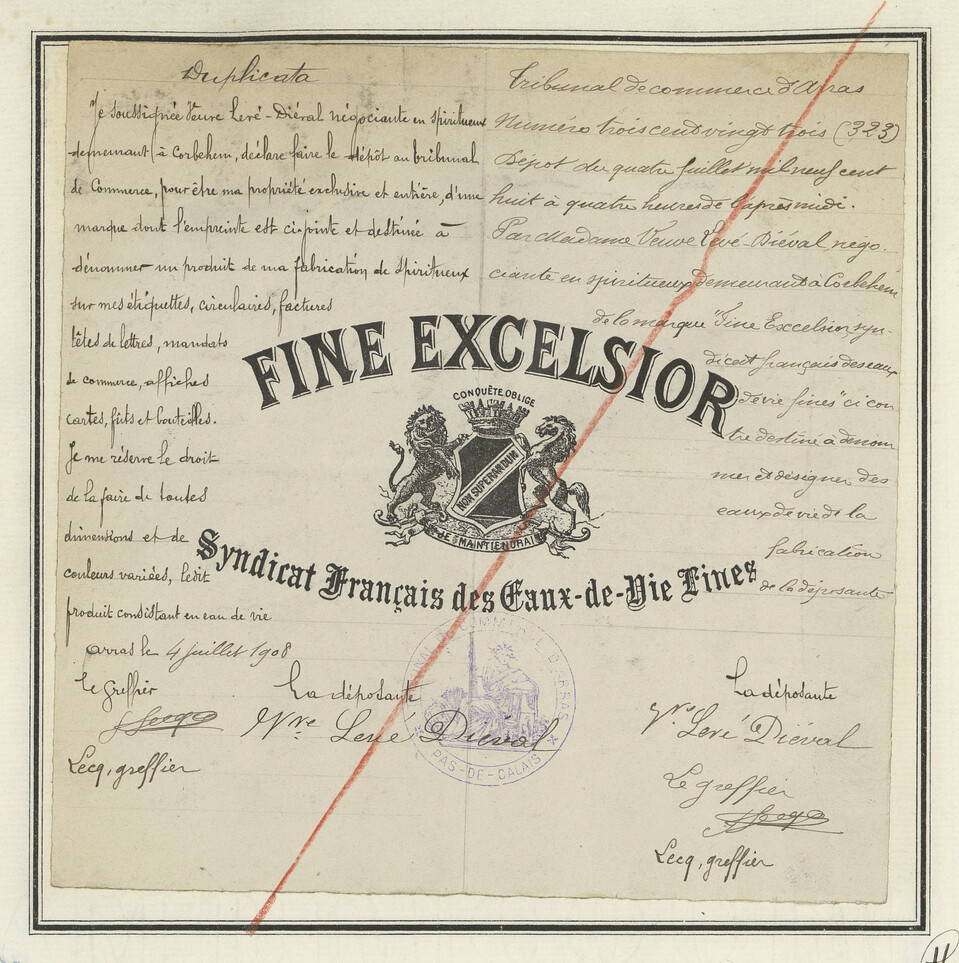 Duplicata
Je soussignée Veuve Levé-Diéval négociante en spiritueux
demeurant à Corbehem, déclare faire le dépôt au tribunal
de Commerce, pour être ma propriété exclusive et entière, d'une
marque dont l'empreinte est ci-jointe et destinée à
dénommer un produit de ma fabrication de spiritueux
sur mes étiquettes, circulaires, factures
têtes de lettres, mandats
de commerce, affiches
cartes, fûts et bouteilles.
Je me réserve le droit
de la faire de toutes
dimensions et de
couleurs variées, ledit
produit consistant en eau de vie
Arras le 4 juillet 1908
Le greffier
La déposante
Vve Levé Diéval
Lecq, greffier
Tribunal de commerce d'Arras
Numéro trois cent vingt trois (323)
Dépôt du quatre juillet mil neuf cent
huit à quatre heures de l'après midi.
Par Madame Veuve Levé-Diéval négo-
ciante en spiritueux demeurant à Corbehem
de la marque "Fine Excelsior syn-
dicat français des eaux
de vie fines" ci con
tre destiné à dénom
mer et désigner des
eaux de vie de la
fabrication
de la déposante
La déposante
Ve Levé Diéval
Le greffier
Lecq, greffier
FINE EXCELSIOR
CONQUÊTE OBLIGE
NON SUPERANDUM
JE MAINTIENDRAI
Syndicat Français des Eaux-de-Vie Fines
TRIBUNAL DE COMMERCE D'ARRAS
PAS-DE-CALAIS